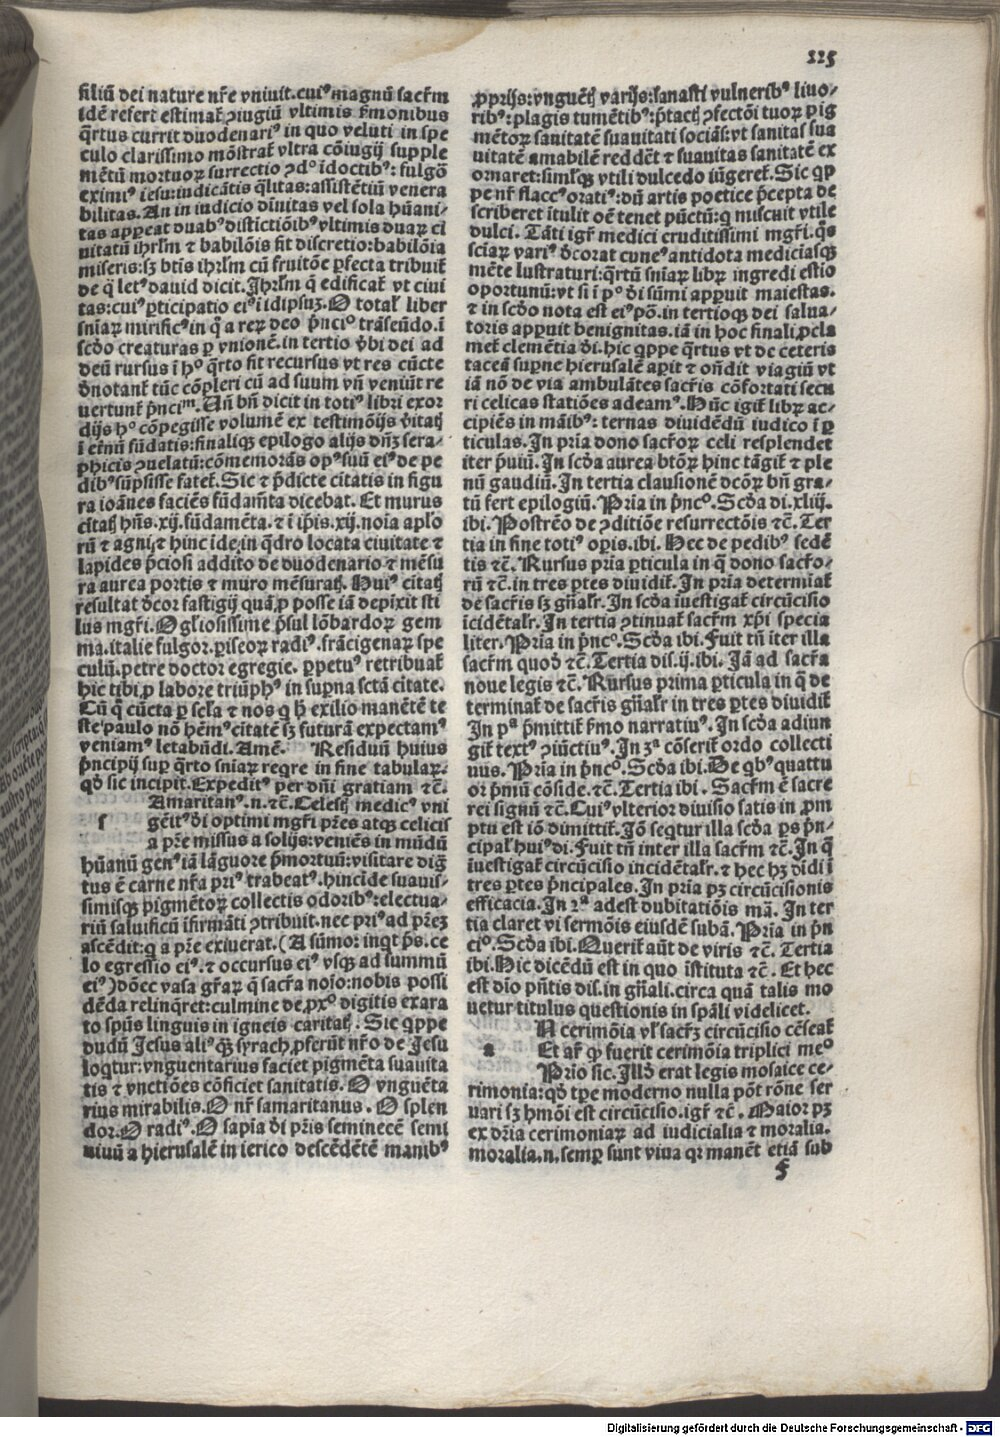 225
filiū dei nature nr̄e vniuit.cuiꝰ magnū sacr̄m
idē refert estimat̄ ꝯiugiū vltimis ẜmonibus
q̄rtus currit duodenariꝰ in quo veluti in spe
culo clarissimo mōstrat̄ vltra cōiugij supple
mētū mortuoꝝ surrectio ꝯdo īdoctibꝰ: fulgo᷒
eximiꝰ iesu:iudicātis q̄litas:assistētiū venera
bilitas. An in iudicio diuītas vel sola hūani/
tas appareat duabꝰ distictiōibꝰ vltimis duaꝝ ci
uitatū ihrl̄m ⁊ babilōis fit discretio:babilōia
miseris:sꝫ btīs ihrl̄m cū fruitōe ꝑfecta tribuit̄
de q̄ letꝰ dauid dicit. Jhrl̄m q̄ edificat̄ vt ciui
tas:cuiꝰ ꝑticipatio eiꝰ ī idipsuꝫ. O total̄ liber
sniaꝝ mirificꝰ in q̄ a reꝝ deo p̄ncio trāseūdo.ī
scd̄o creaturas ꝑ vnionē.in tertio v̄bi dei ad
deū rursus ī ho q̄rto fit recursus vt res cūcte
d̄notant̄ tūc cōpleri cū ad suum vn̄ veniūt re
uertunt̄ p̄ncim. Un̄ bn̄ dicit in totiꝰ libri exor
dijs ho cōpegisse volumē ex testimōijs v̄itatꝭ
ī et̄nū fūdatis:finaliqꝫ epilogo alijs dn̄ꝫ sera/
phicis ꝯuelatū:cōmemorās opꝰ suū eiꝰ de pe
dibꝰ sūpsisse fatet̄. Sic ⁊ p̄dicte citatis in figu
ra ioānes faciēs fūdam̄ta dicebat. Et murus
citatꝭ hn̄s.xij.fūdamēta.⁊ ī ip̄is.xij.noīa apl̄o
rū ⁊ agni,⁊ hinc īde,in q̄dro locata ciuitate ⁊
lapides p̄ciosi addito de duodenario ⁊ mēsu
ra aurea portis ⁊ muro mēsuratꝭ. Huiꝰ citatꝭ
resultat d̄cor fastigij quā ꝓ posse iā depīxit sti
lus mgr̄i. O gl̄iosissime p̄sul lōbardoꝝ gem
ma.italie fulgor.ꝑiseoꝝ radiꝰ.frācigenaꝝ spe
culū.petre doctor egregie. ꝑpetuꝰ retribuat̄
hic tibi ꝓ labore triūphꝰ in suꝑna sctā citate.
Cū q̄ cūcta ꝑ sel̄a ⁊ nos q ħ exilio manētē te
ste paulo nō hēmꝰ citatē sꝫ futurā expectamꝰ
veniamꝰ letabūdi. Amē. Residuū huius
p̄ncipij sup q̄rto sniaꝝ reqre in fine tabulaꝝ.
qd̄ sic incipit. Expeditꝰ per dn̄i gratiam ⁊c̄.
Amaritanꝰ.n.⁊c̄. Celestꝭ medicꝰ vni
s gēitꝰ d̄i optimi mgr̄i pr̄es atqꝫ celicis
a pr̄e missus a solijs:veniēs in mūdū
hūanū genꝰ iā lāguore p̄mortuū:visitare dig̃
tus ē carne nr̄a priꝰ trabeatꝰ.hincīde suauis/
simisqꝫ pigmētoꝝ collectis odoribꝰ:electua/
riū saluificū īfirmāti ꝯtribuit.nec priꝰ ad pr̄eꝫ
ascēdit:q̄ a pr̄e exiuerat.(A sūmo: inqt p̄s.ce
lo egressio eiꝰ.⁊ occursus eiꝰ vsqꝫ ad summū
eiꝰ)donec vasa gr̄aꝝ q̄ sacr̄a noīo:nobis possi
dēda relinqret:culmine de ꝓxo digitis exara
to spūs linguis in igneis caritatꝭ. Sic qppe
dudū Jesus aliꝰ qꝫ syrach ꝓferūt nr̄o de Jesu
loqtur:vnguentarius faciet pigmēta suauita
tis ⁊ vnctiōes cōficiet sanitatis. O vnguēta
rius mirabilis. O nr̄ samaritanus. O splen
dor. O radiꝰ. O sapīa d̄i pr̄is seminecē semi
uiuū a hierusalē in ierico descēdētē manibꝰ
ꝓprijs:vnguētꝭ varijs:sanasti vulneribꝰ liuo/
ribꝰ:plagis tumētibꝰ:p̄tactꝭ ꝯfectōi tuoꝝ pig
mētoꝝ sanitatē suauitati sociās:vt sanitas sua
uitatē amabilē reddēt ⁊ suauitas sanitatē ex
ornaret:simlꝫqꝫ vtili dulcedo iūgeret̄. Sic qp
pe nr̄ flaccꝰ oratiꝰ:dū artis poetice p̄cepta de
scriberet ītulit oē tenet pūctū:q̄ miscuit vtile
dulci. Tāti igr̄ medici eruditissimi mgr̄i.qs
sciaꝝ variꝰ d̄corat cuneꝰ antidota mediciasqꝫ
mēte lustraturi:q̄rtū sniaꝝ librꝝ ingredi estio
oportunū:vt si ī po d̄i sūmi apparuit maiestas.
⁊ in scd̄o nota est eiꝰ pō.in tertioqꝫ dei salua/
toris apparuit benignitas.iā in hoc finali ꝓcla
met̄ clemētia d̄i.hic qppe q̄rtus vt de ceteris
taceā suꝑne hierusalē aꝑit ⁊ on̄dit viagiū vt
iā nō de via ambulātes sacr̄is cōfortati secu
ri celicas statiōes adeamꝰ. Hūc igit̄ librꝝ ac/
cipiēs in māibꝰ: ternas diuidēdū iudico ī ꝑ
ticulas. In pria dono sacr̄oꝝ celi resplendet
iter p̄uiū. In scd̄a aurea btōꝝ hinc tāgit̄ ⁊ ple
nū gaudiū. In tertia clausionē dc̄oꝝ bn̄ gra/
tū fert epilogiū. Pria in p̄nco. Scd̄a di.xliij.
ibi. Postrēo de ꝯditiōe resurrectōis ⁊c̄. Ter
tia in fine totiꝰ opis.ibi. Hec de pedibꝰ sedē
tis ⁊c̄. Rursus pria ꝑticula in q̄ dono sacr̄o/
rū ⁊c̄.in tres ꝑtes diuidit̄. In pria determīat̄
de sacr̄is sꝫ gn̄alr̄. In scd̄a īuestigat̄ circūcisio
īcidētalr̄. In tertia ꝯtinuat̄ sacr̄m xp̄i specia
liter. Pria in p̄nco. Scd̄a ibi. Fuit tn̄ iter illa
sacr̄m quod ⁊c̄. Tertia dis.ij.ibi. Jā ad sacr̄a
noue legis ⁊c̄. Rursus prima ꝑticula in q̄ de
terminat̄ de sacr̄is gn̄alr̄ in tres ꝑtes diuidit̄
In pa p̄mittit̄ p̄mo narratiuꝰ. In scd̄a adiun
git̄ textꝰ ꝯiūctiuꝰ. In 3a cōserit̄ ordo collecti
uus. Pria in p̄nco. Scd̄a ibi. De qbꝰ quattu
or p̄miū cōside.⁊c̄. Tertia ibi. Sacr̄m ē sacre
rei signū ⁊c̄. Cuiꝰ vlterior diuisio satis in ꝓm
ptu est iō dimittit̄. Jō seqtur illa scd̄a ꝑs p̄n/
cipal̄ huiꝰ di. Fuit tn̄ inter illa sacr̄m ⁊c̄. In q̄
īuestigat̄ circūcisio incidētalr̄.⁊ hec hꝫ diūdi ī
tres ꝑtes p̄ncipales. In pria pꝫ circūcisionis
efficacia. In 2a adest dubitatiōis mā. In ter
tia claret vi sermōis eiusdē subā. Pria in p̄n
cio. Scd̄a ibi. Querit̄ aūt de viris ⁊c̄. Tertia
ibi. Hic dicēdū est in quo īstituta ⁊c̄. Et hec
est dīo pn̄tis dis.in gn̄ali.circa quā talis mo
uetur titulus questionis in sp̄ali videlicet.
N cerimōia vl̄ sacr̄ꝫ circūcisio cēseat̄
a Et ar̄ ꝙ fuerit cerimōia triplici meo
Prio sic. Illd̄ erat legis mosaice ce/
rimonia:qd̄ tp̄e moderno nulla pōt rōne ser
uari sꝫ hmōi est circūcisio.igr̄ ⁊c̄. Maior pꝫ
ex dr̄ia cerimoniaꝝ ad iudicialia ⁊ moralia.
moralia.n.semꝑ sunt viua qꝛ manēt etiā sub